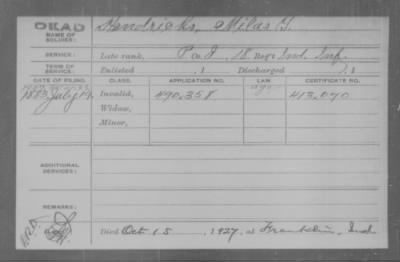 DEAD
NAME OF SOLDIER: Hendricks, Milas G.
SERVICE: Late rank, P Co I, 18 Reg't Ind. Inf.
TERM OF SERVICE: Enlisted , 1 Discharged , 1
DATE OF FILING. CLASS. APPLICATION NO. LAW. CERTIFICATE NO.
1883 July 19. Invalid, 490.358 413.070
Widow,
Minor,
ADDITIONAL SERVICES:
REMARKS:
Died Oct 15, 1927, at Franklin, Ind